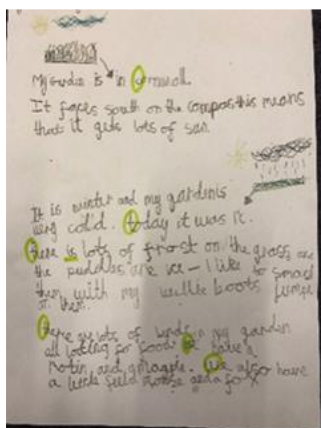 My Garden is in cornwall.
It faces south on the compas this means
that it gets lots of sun.
It is winter and my garden is
very cold. today it was 1c.
there is lots of frost on the grass and
the puddles are ice - I like to smash
them with my wellie boots jumpe
on them.
there are lots of birds in my garden
all looking for food we have a
robin and magpie. we also have
a little field mouse and a fox